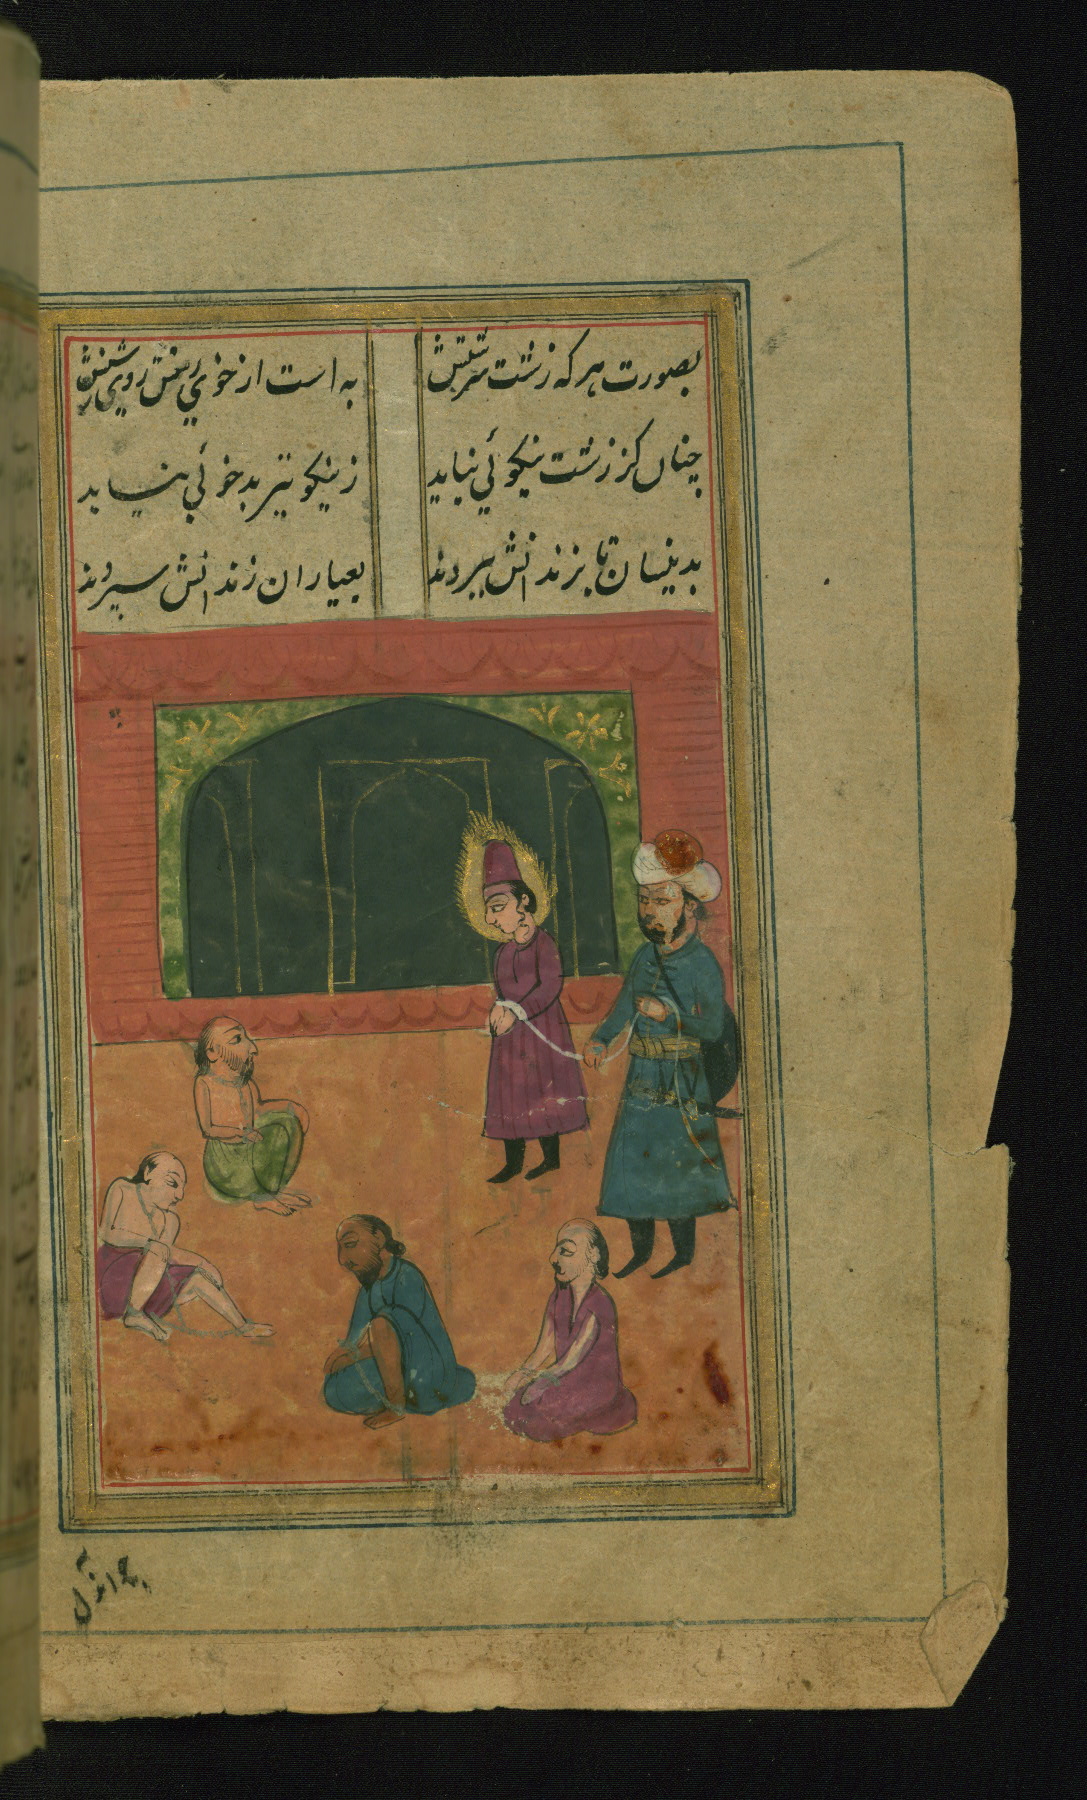 بصورت هر که زشت سرشتش به است از خوی زشتش روی زشتش
چنان کز زشت نیکوئی نیاید ز نیکو نیز بدخوئی نیاید
بدینسان تا بزندانش ببردند بعیاران زندانش سپردند